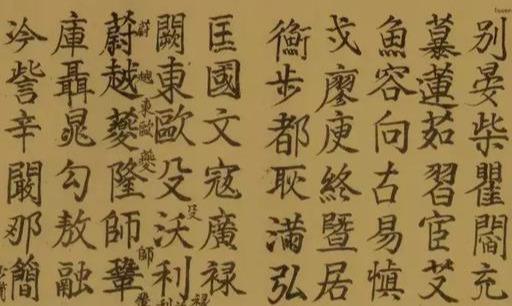 别晏柴瞿閻充
慕蓮茹習宦艾
魚容向古易慎
戈廖庚終暨居
衡步都耿滿弘
匡國文寇廣禄
禄
殳
闕東歐殳沃利
利
蔚
東歐
夔
師
鞏
蔚越夔隆師鞏
庫聶晁勾敖融
冷訾辛闞那簡